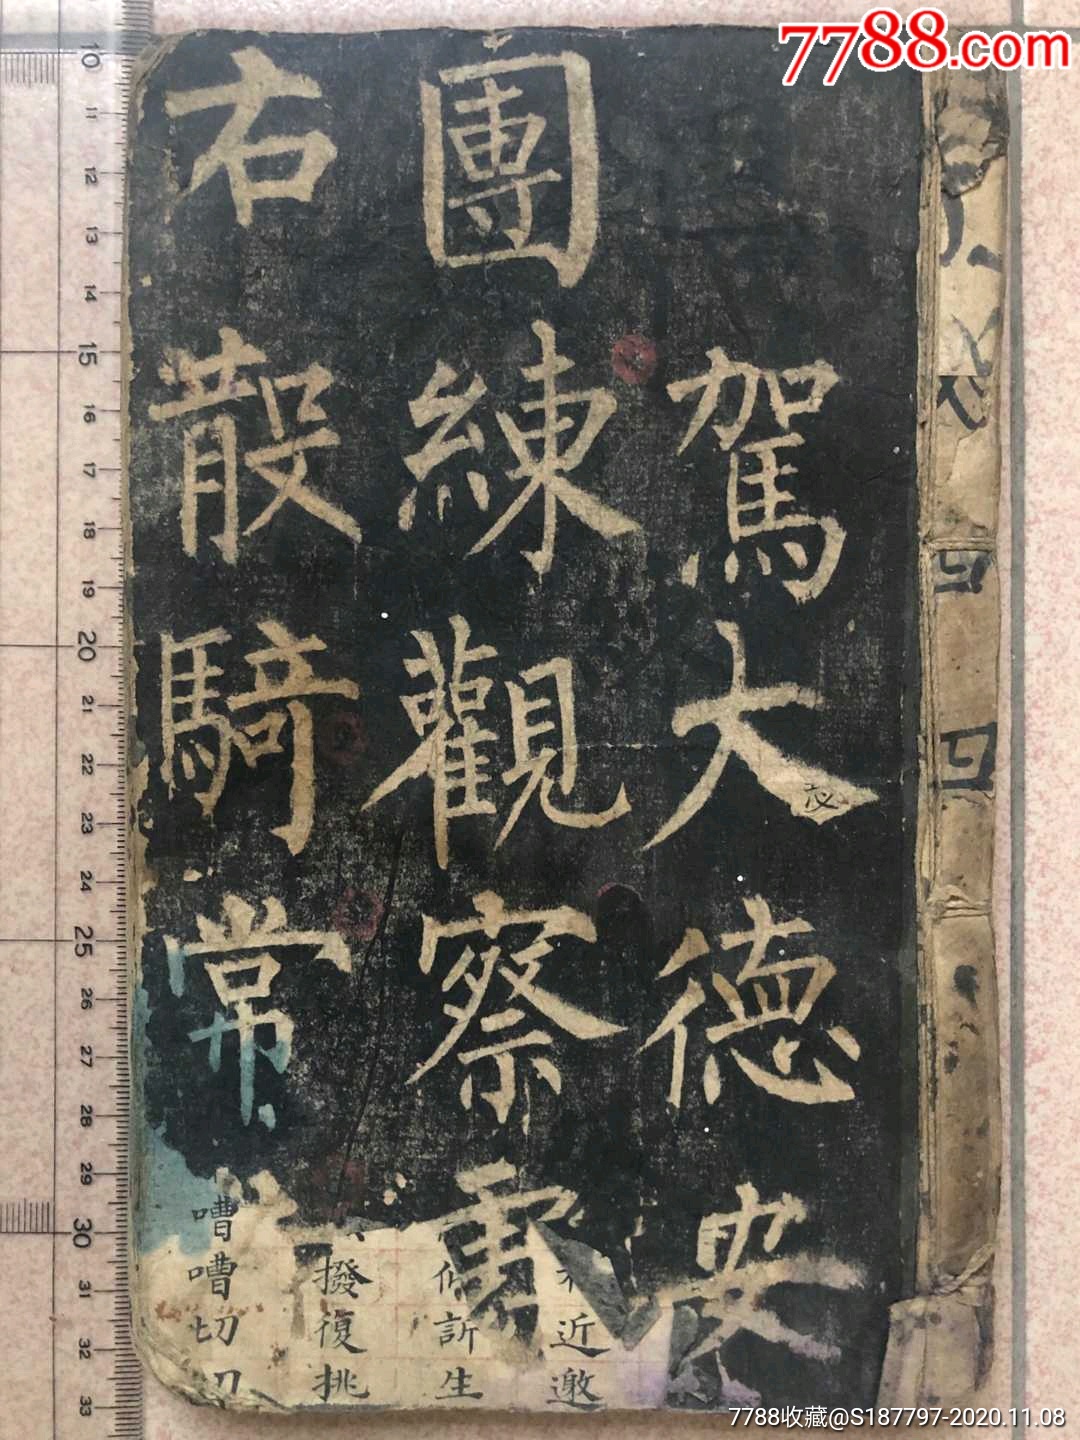 7788.com
駕大德安
團練觀察
右散騎常
近邀
訢生
撥復挑
嘈嘈切切
10
11
12
13
14
15
16
17
18
19
20
21
22
23
24
25
26
27
28
29
30
31
32
33
7788收藏@S187797-2020.11.08